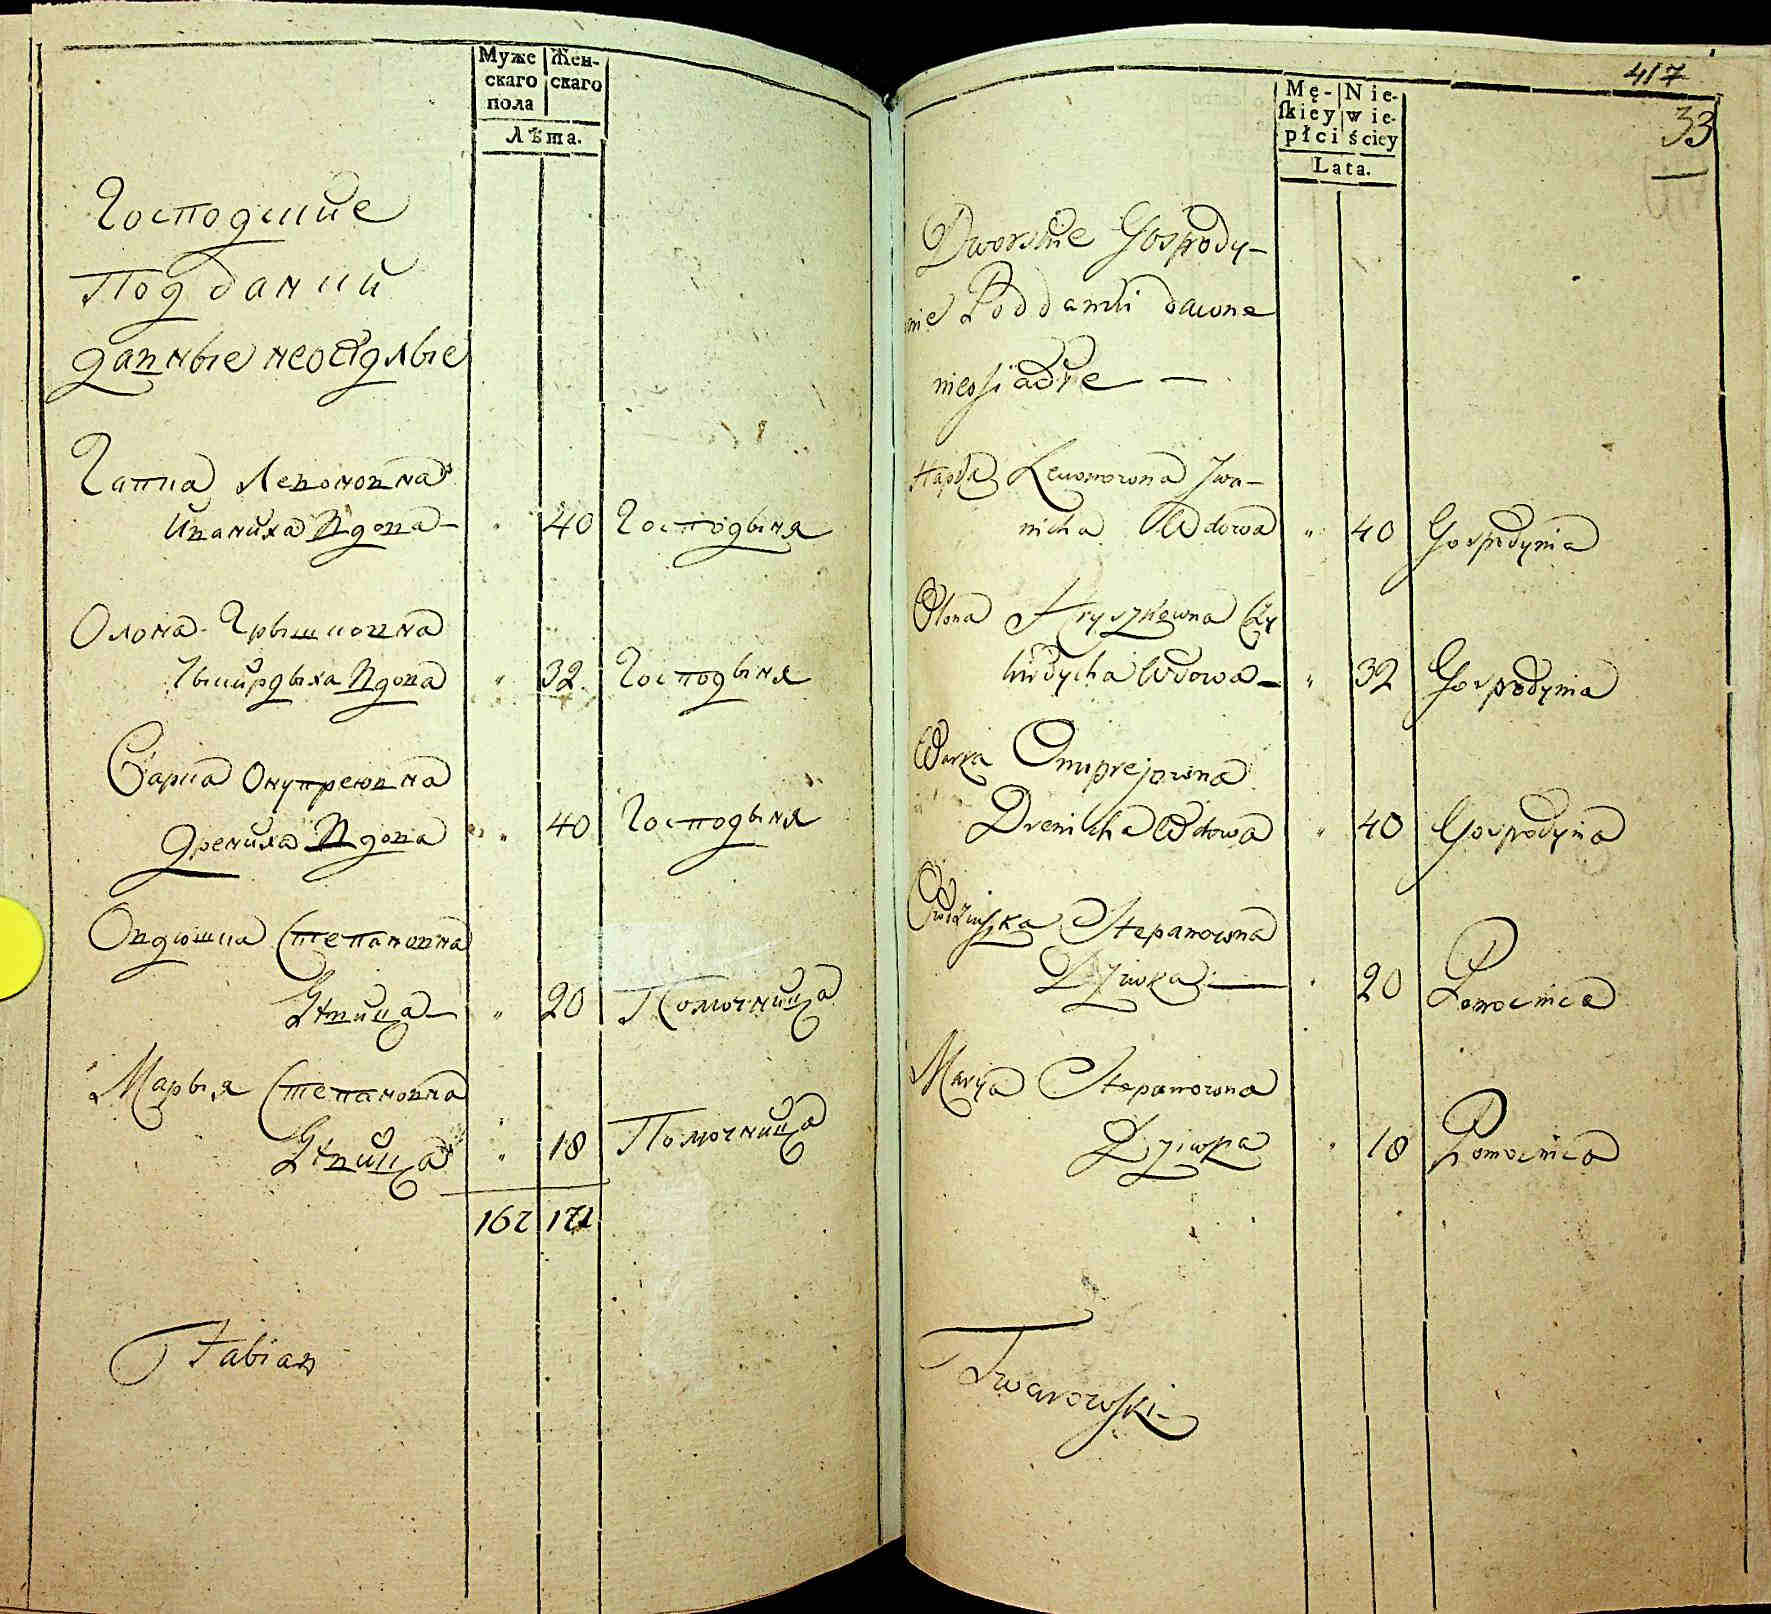 Муже Жен-
скаго скаго
пола
Лѣта.
Господские
Поддании
давные неоседлые
Гапка Левоновна
Иваниха Вдова 40 Господыня
Олона Грышковна
Вдова 32 Господыня
Варка Онупреювна
Дрениха Вдова 40 Господыня
Овдюшка Степановна
Дѣвица 20 Помочница
Марыя Степановна
Дѣвица 18 Помочница
162 171
Fabian
417
33
Mę- Nie-
skiey wie-
płci ściey
Lata.
Dworskie Gospody-
nie Poddanki dawne
nieosiadłe
Hapka Lewonowna Iwa-
nicha Wdowa 40 Gospodynia
Olona Hryszkowna
Wdowa 32 Gospodynia
Warka Onuprejowna
Drenicha Wdowa 40 Gospodynia
Owdziuszka Stepanowna
Dziwka 20 Pomocnica
Marya Stepanowna
Dziwka 18 Pomocnica
Twarowski